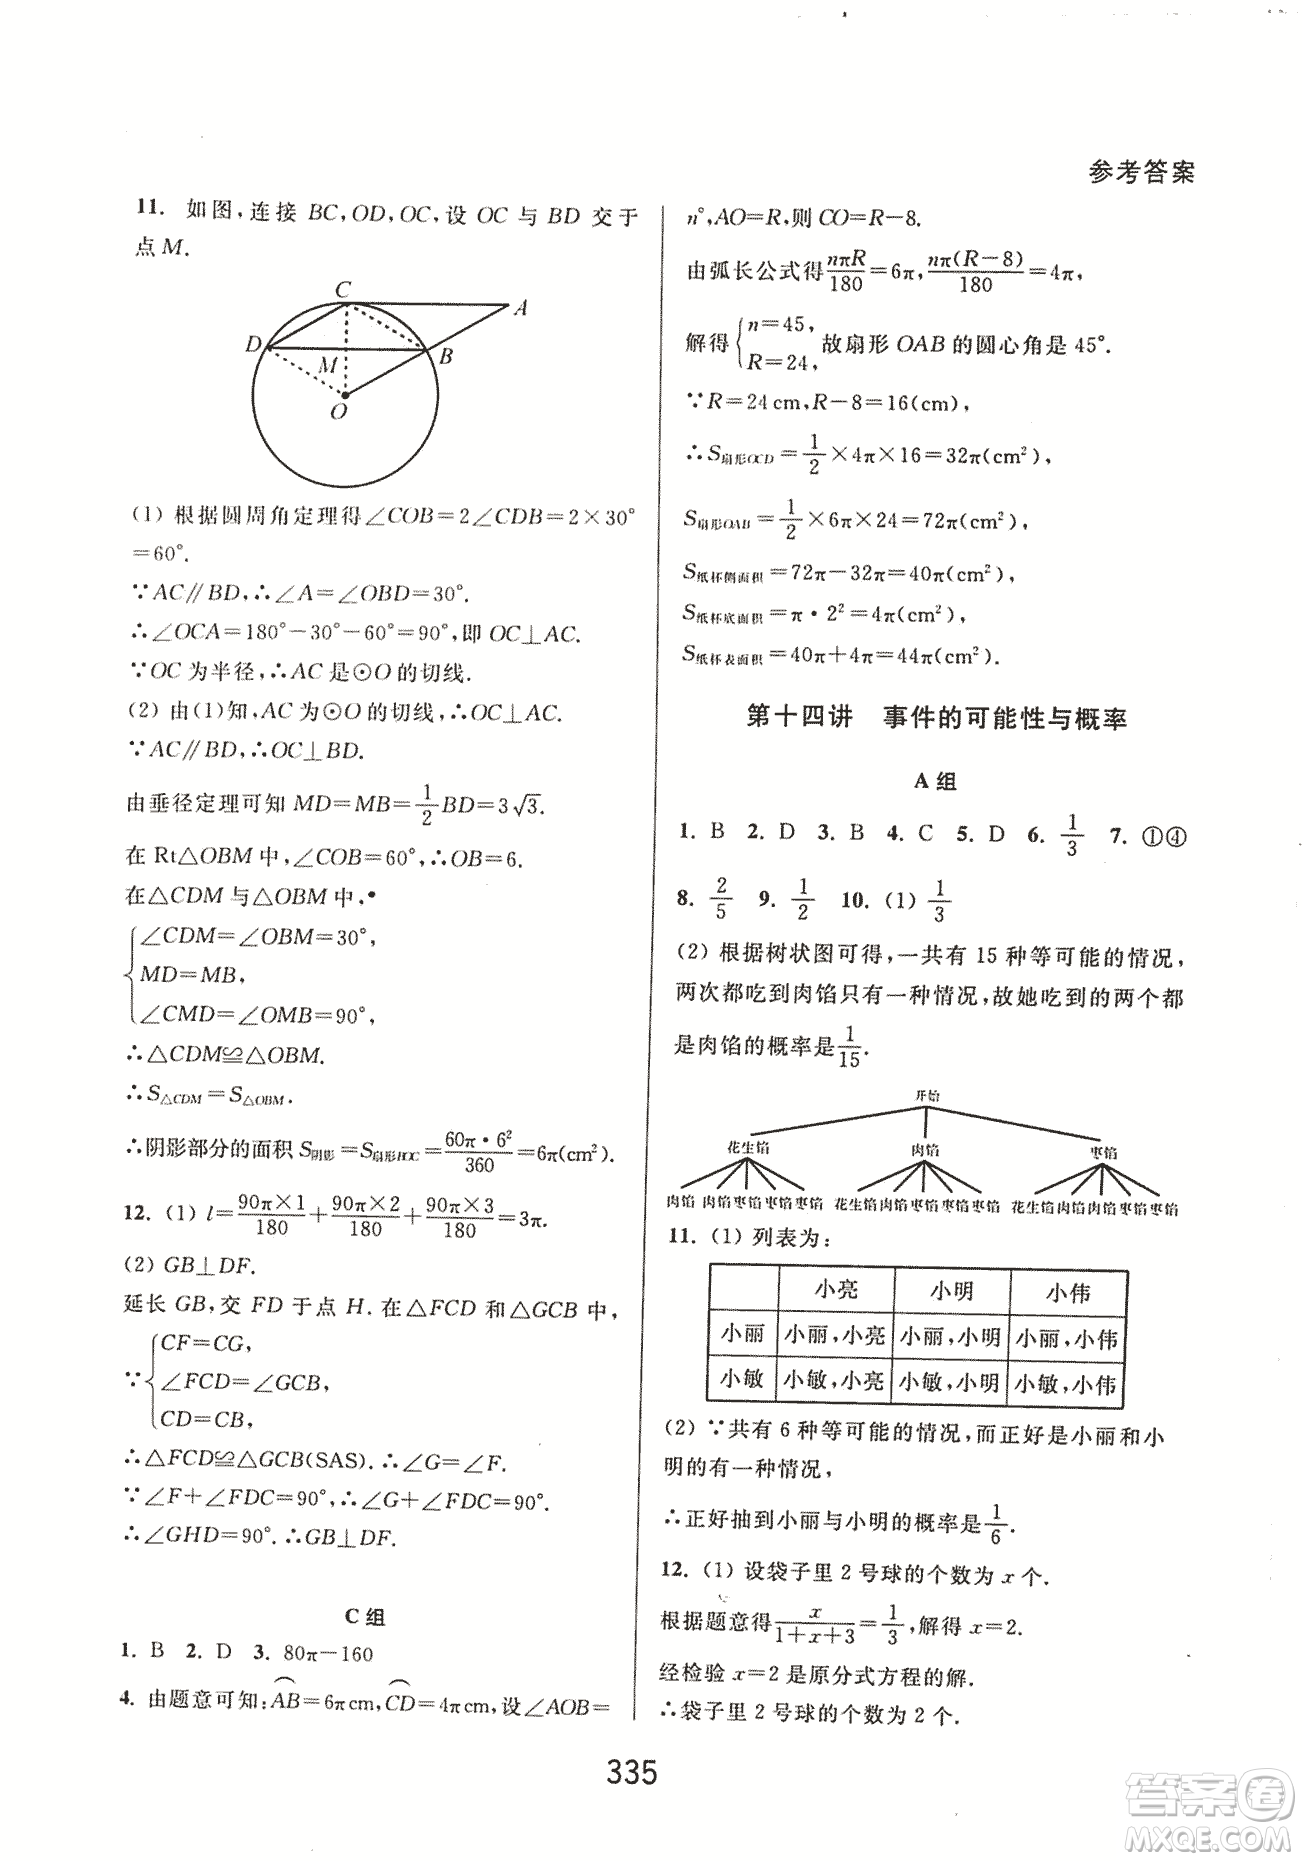 参考答案
11. 如图,连接 BC,OD,OC,设 OC 与 BD 交于
点 M.
C
A
D
M
B
O
(1) 根据圆周角定理得∠COB=2∠CDB=2×30°
=60°.
∵AC∥BD,∴∠A=∠OBD=30°.
∴∠OCA=180°-30°-60°=90°,即 OC⊥AC.
∵OC 为半径,∴AC 是⊙O 的切线.
(2) 由(1)知,AC 为⊙O 的切线,∴OC⊥AC.
∵AC∥BD,∴OC⊥BD.
由垂径定理可知 MD=MB=1/2BD=3√3.
在 Rt△OBM 中,∠COB=60°,∴OB=6.
在△CDM 与△OBM 中,
{∠CDM=∠OBM=30°,
MD=MB,
∠CMD=∠OMB=90°,
∴△CDM≌△OBM.
∴S△CDM=S△OBM.
∴阴影部分的面积 S阴影=S扇形BOC=60π·6²/360=6π(cm²).
12. (1) l=90π×1/180+90π×2/180+90π×3/180=3π.
(2) GB⊥DF.
延长 GB,交 FD 于点 H.在△FCD 和△GCB 中,
∵{CF=CG,
∠FCD=∠GCB,
CD=CB,
∴△FCD≌△GCB(SAS).∴∠G=∠F.
∵∠F+∠FDC=90°,∴∠G+∠FDC=90°.
∴∠GHD=90°.∴GB⊥DF.
C 组
1. B 2. D 3. 80π-160
4. 由题意可知:⌒AB=6πcm,⌒CD=4πcm,设∠AOB=
n°,AO=R,则 CO=R-8.
由弧长公式得nπR/180=6π,nπ(R-8)/180=4π,
解得{n=45,
R=24,故扇形 OAB 的圆心角是 45°.
∵R=24cm,R-8=16(cm),
∴S扇形OCD=1/2×4π×16=32π(cm²),
S扇形OAB=1/2×6π×24=72π(cm²),
S纸杯侧面积=72π-32π=40π(cm²),
S纸杯底面积=π·2²=4π(cm²),
S纸杯表面积=40π+4π=44π(cm²).
第十四讲 事件的可能性与概率
A 组
1. B 2. D 3. B 4. C 5. D 6. 1/3 7. ①④
8. 2/5 9. 1/2 10. (1) 1/3
(2) 根据树状图可得,一共有 15 种等可能的情况,
两次都吃到肉馅只有一种情况,故她吃到的两个都
是肉馅的概率是1/15.
开始
花生馅 肉馅 枣馅
肉馅 肉馅枣馅枣馅枣馅 花生馅肉馅枣馅枣馅枣馅 花生馅肉馅肉馅枣馅枣馅
11. (1) 列表为:
小亮 小明 小伟
小丽 小丽,小亮 小丽,小明 小丽,小伟
小敏 小敏,小亮 小敏,小明 小敏,小伟
(2) ∵共有 6 种等可能的情况,而正好是小丽和小
明的有一种情况,
∴正好抽到小丽与小明的概率是1/6.
12. (1) 设袋子里 2 号球的个数为 x 个.
根据题意得x/1+x+3=1/3,解得 x=2.
经检验 x=2 是原分式方程的解.
∴袋子里 2 号球的个数为 2 个.
335
答案卷
MXQE.COM